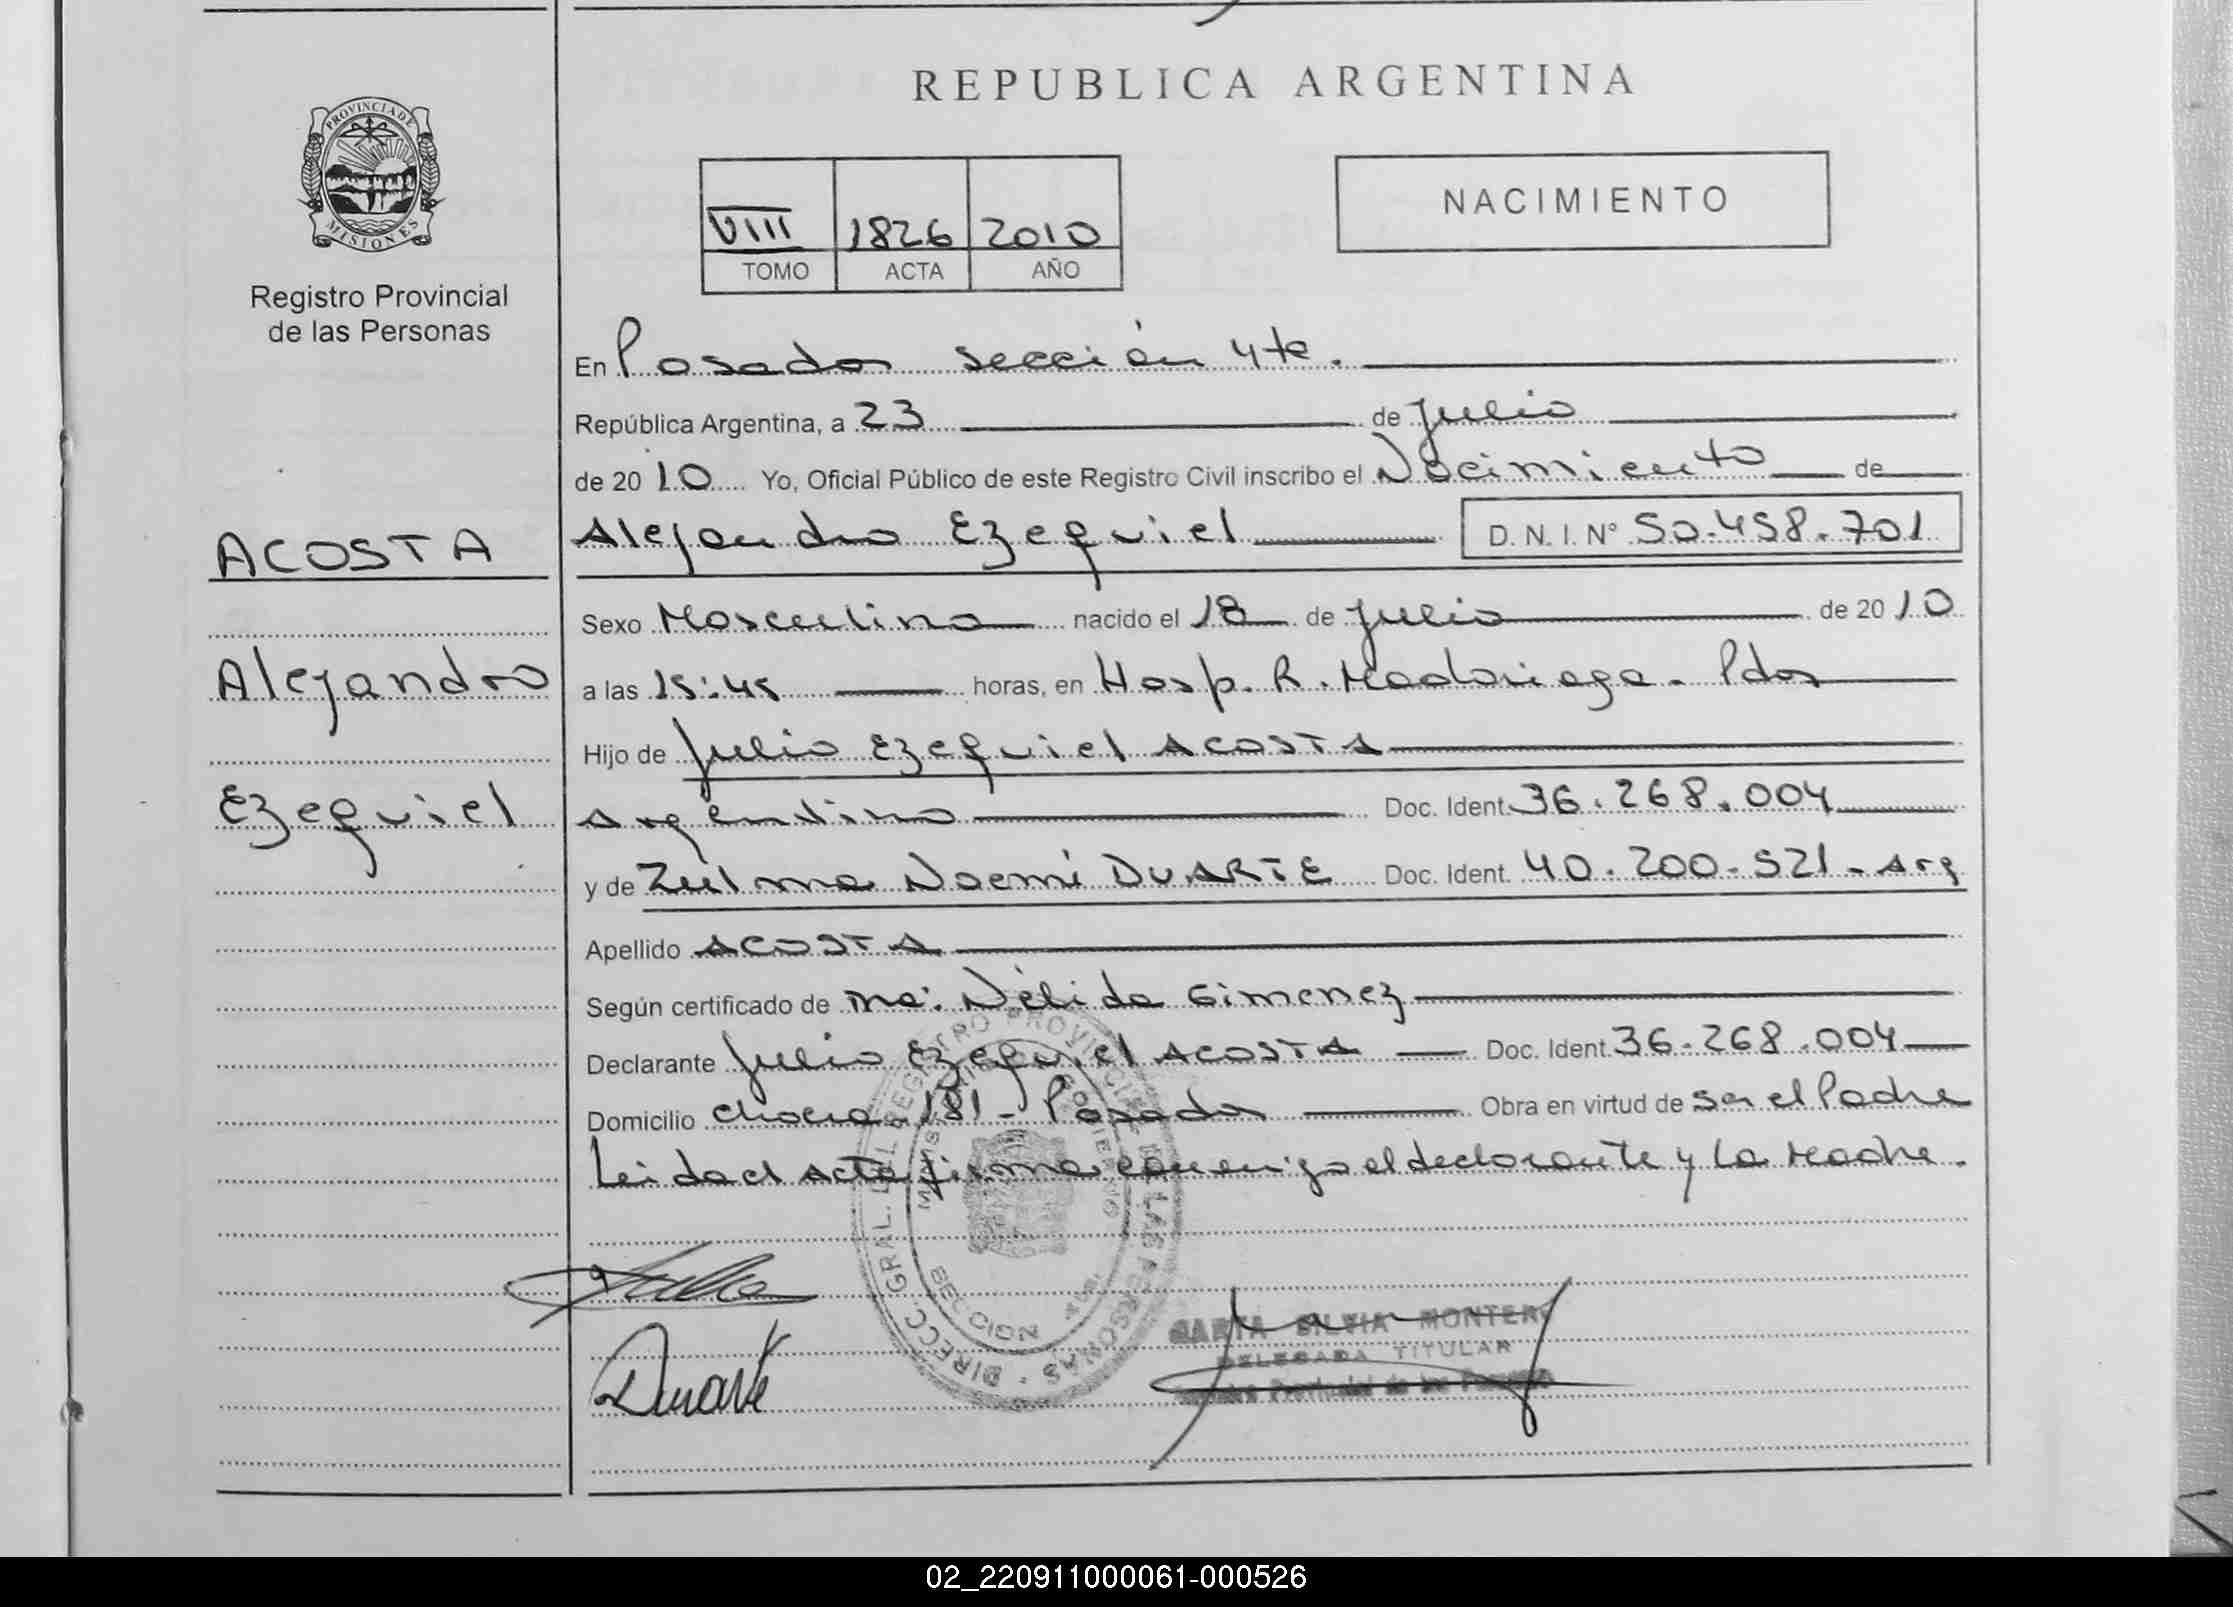 REPUBLICA ARGENTINA
PROVINCIA DE
MISIONES
Registro Provincial
de las Personas
NACIMIENTO
VIII 1826 2010
TOMO ACTA AÑO
En Posadas sección 4ta.
República Argentina, a 23 de Julio
de 2010 Yo, Oficial Público de este Registro Civil inscribo el Nacimiento de
ACOSTA
Alejandro Ezequiel D. N. I. N° 50.458.701
Sexo Masculino nacido el 18 de Julio de 2010
Alejandro
a las 15:45 horas, en Hosp. R. Madariaga - Pdas
Hijo de Julio Ezequiel ACOSTA
Ezequiel
Argentino Doc. Ident. 36.268.004
y de Zulma Noemi DUARTE Doc. Ident. 40.200.521 - Arg
Apellido ACOSTA
Según certificado de Nélida Gimenez
Declarante Julio Ezequiel ACOSTA Doc. Ident. 36.268.004
Domicilio Chacra 181 - Posadas Obra en virtud de ser el Padre
Leida el Acta firma conmigo el declarante y la Madre.
DIRECC. GRAL. DEL REGISTRO PROVINCIAL DE LAS PERSONAS
SECCION
Duarte
MARTA SILVIA MONTERO
DELEGADA TITULAR
Registro Provincial de las Personas
02_220911000061-000526